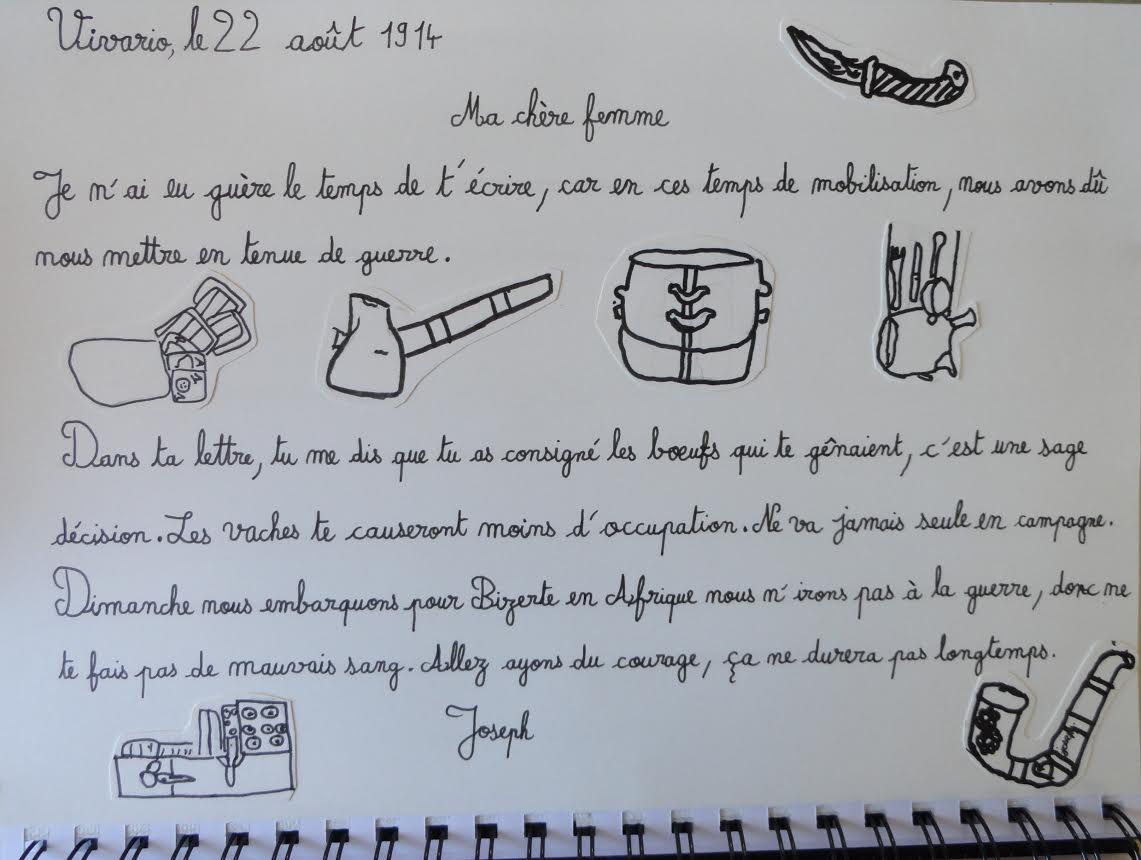 Vivario, le 22 août 1914
Ma chère femme
Je n'ai eu guère le temps de t'écrire, car en ces temps de mobilisation, nous avons dû
nous mettre en tenue de guerre.
Dans ta lettre, tu me dis que tu as consigné les bœufs qui te gênaient, c'est une sage
décision. Les vaches te causeront moins d'occupation. Ne va jamais seule en campagne.
Dimanche nous embarquons pour Bizerte en Afrique nous n'irons pas à la guerre, donc ne
te fais pas de mauvais sang. Allez ayons du courage, ça ne durera pas longtemps.
Joseph